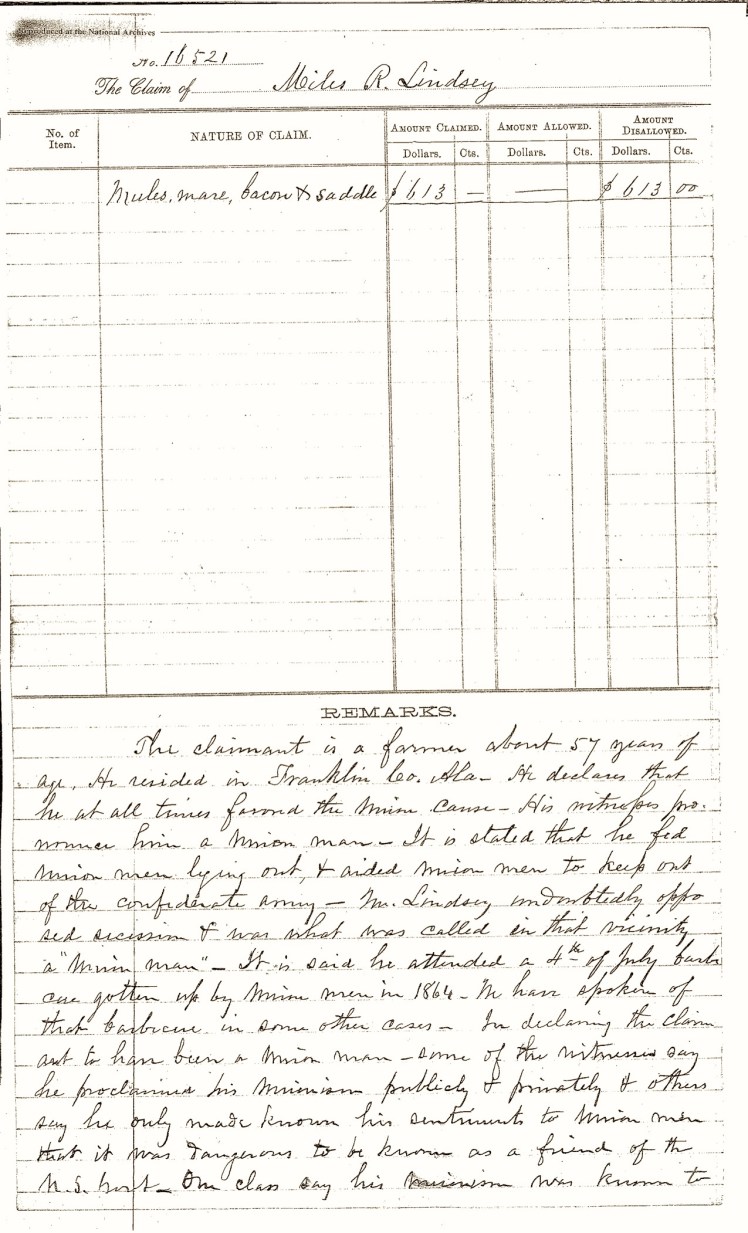 Reproduced at the National Archives
No. 16521
The Claim of Miles R. Lindsey
No. of Item. NATURE OF CLAIM. AMOUNT CLAIMED. AMOUNT ALLOWED. AMOUNT DISALLOWED.
Dollars. Cts. Dollars. Cts. Dollars. Cts.
Mules, mare, bacon & saddle $613 — — $613 00
REMARKS.
The claimant is a farmer about 57 years of
age. He resided in Franklin Co. Ala— He declares that
he at all times favored the Union cause— His witnesses pro-
nounce him a Union man— It is stated that he fed
Union men lying out, & aided Union men to keep out
of the confederate army— Mr. Lindsey undoubtedly oppo
sed secession & was what was called in that vicinity
a "Union man"— It is said he attended a 4th of July barbe
cue gotten up by Union men in 1864— We have spoken of
that barbecue in some other cases— In declaring the claim
ant to have been a Union man—some of the witnesses say
he proclaimed his Unionism publicly & privately & others
say he only made known his sentiments to Union men
that it was dangerous to be known as a friend of the
U.S. Govt— One class say his Unionism was known to